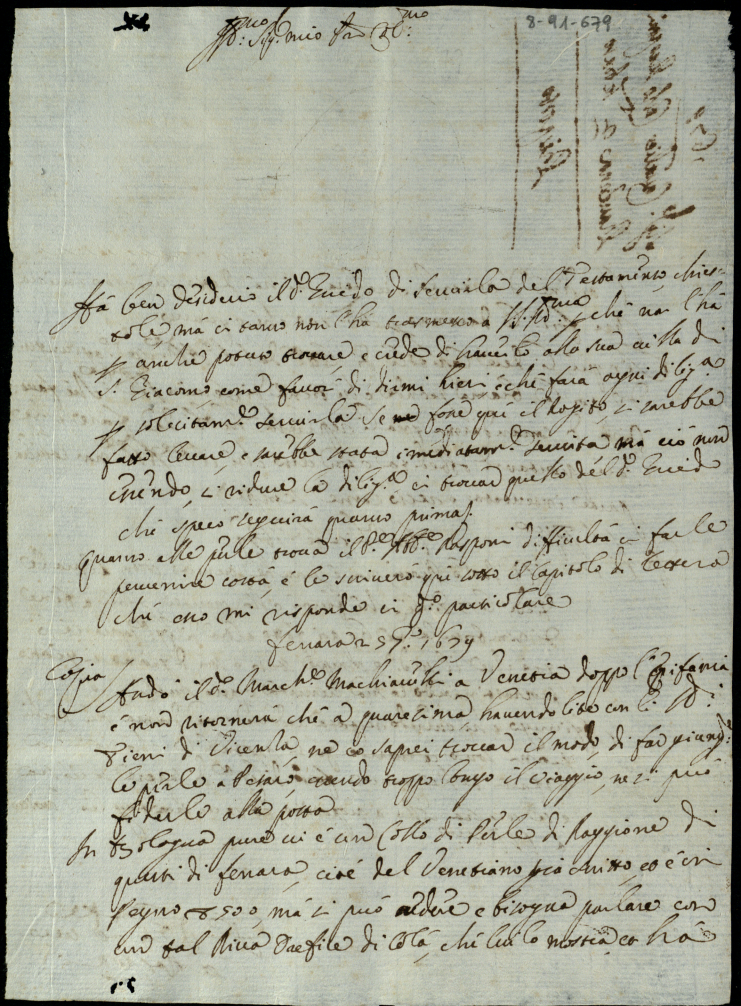 8-91-679
Ill.mo Sig.r mio
Hà ben desiderio il d.º Guido di servirla del Testamento chies-
toli mà ci tanno non l'hà trasmesso a V.S. Ill.ma p che non l'hà
p anche potuto trovare, e crede di haverlo alla sua villa di
S. Giacomo come favorì di dirmi hieri, e che farà ogni dilig.a
p solecitam.e servirla, se fosse quì il Rogito, si sarebbe
fatto levare, e sarebbe stata imediatam.e servita mà ciò non
essendo, si riduce la dilig.a in trovar questo del d.º Guido
che spero seguirà quanto prima.
quanto alle perle trova il S.r Abb.e Rasponi difficoltà in farle
pervenire costà, e le scriverò qui sotto il Capitolo di lettera
che esso mi risponde in q.º particolare
ferrara 25 1679
Copia
Andò il d.º March.e Machiavelli a Venetia doppo l'Epifania
e non ritornerà che a quaresima havendo lite con li
Pieni di Vicenza, ne io saprei trovar il modo, di far giung.e
le perle a Pesaro, essendo troppo longo il viaggio, ne si può
fiderle alla posta
In Bologna pure vi è un Collo di Perle di Raggione di
questi di ferrara, cioè del Venetiano già scritto, et è in
Pegno 8500, mà si può vedere e bisogna parlare con
un tal Riva Orefice di colà, che lui lo mostra et hà